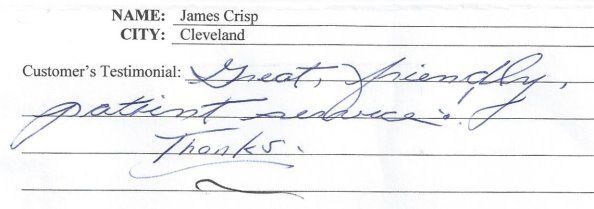 NAME: James Crisp
CITY: Cleveland
Customer's Testimonial: Great, friendly,
patient service!
Thanks.